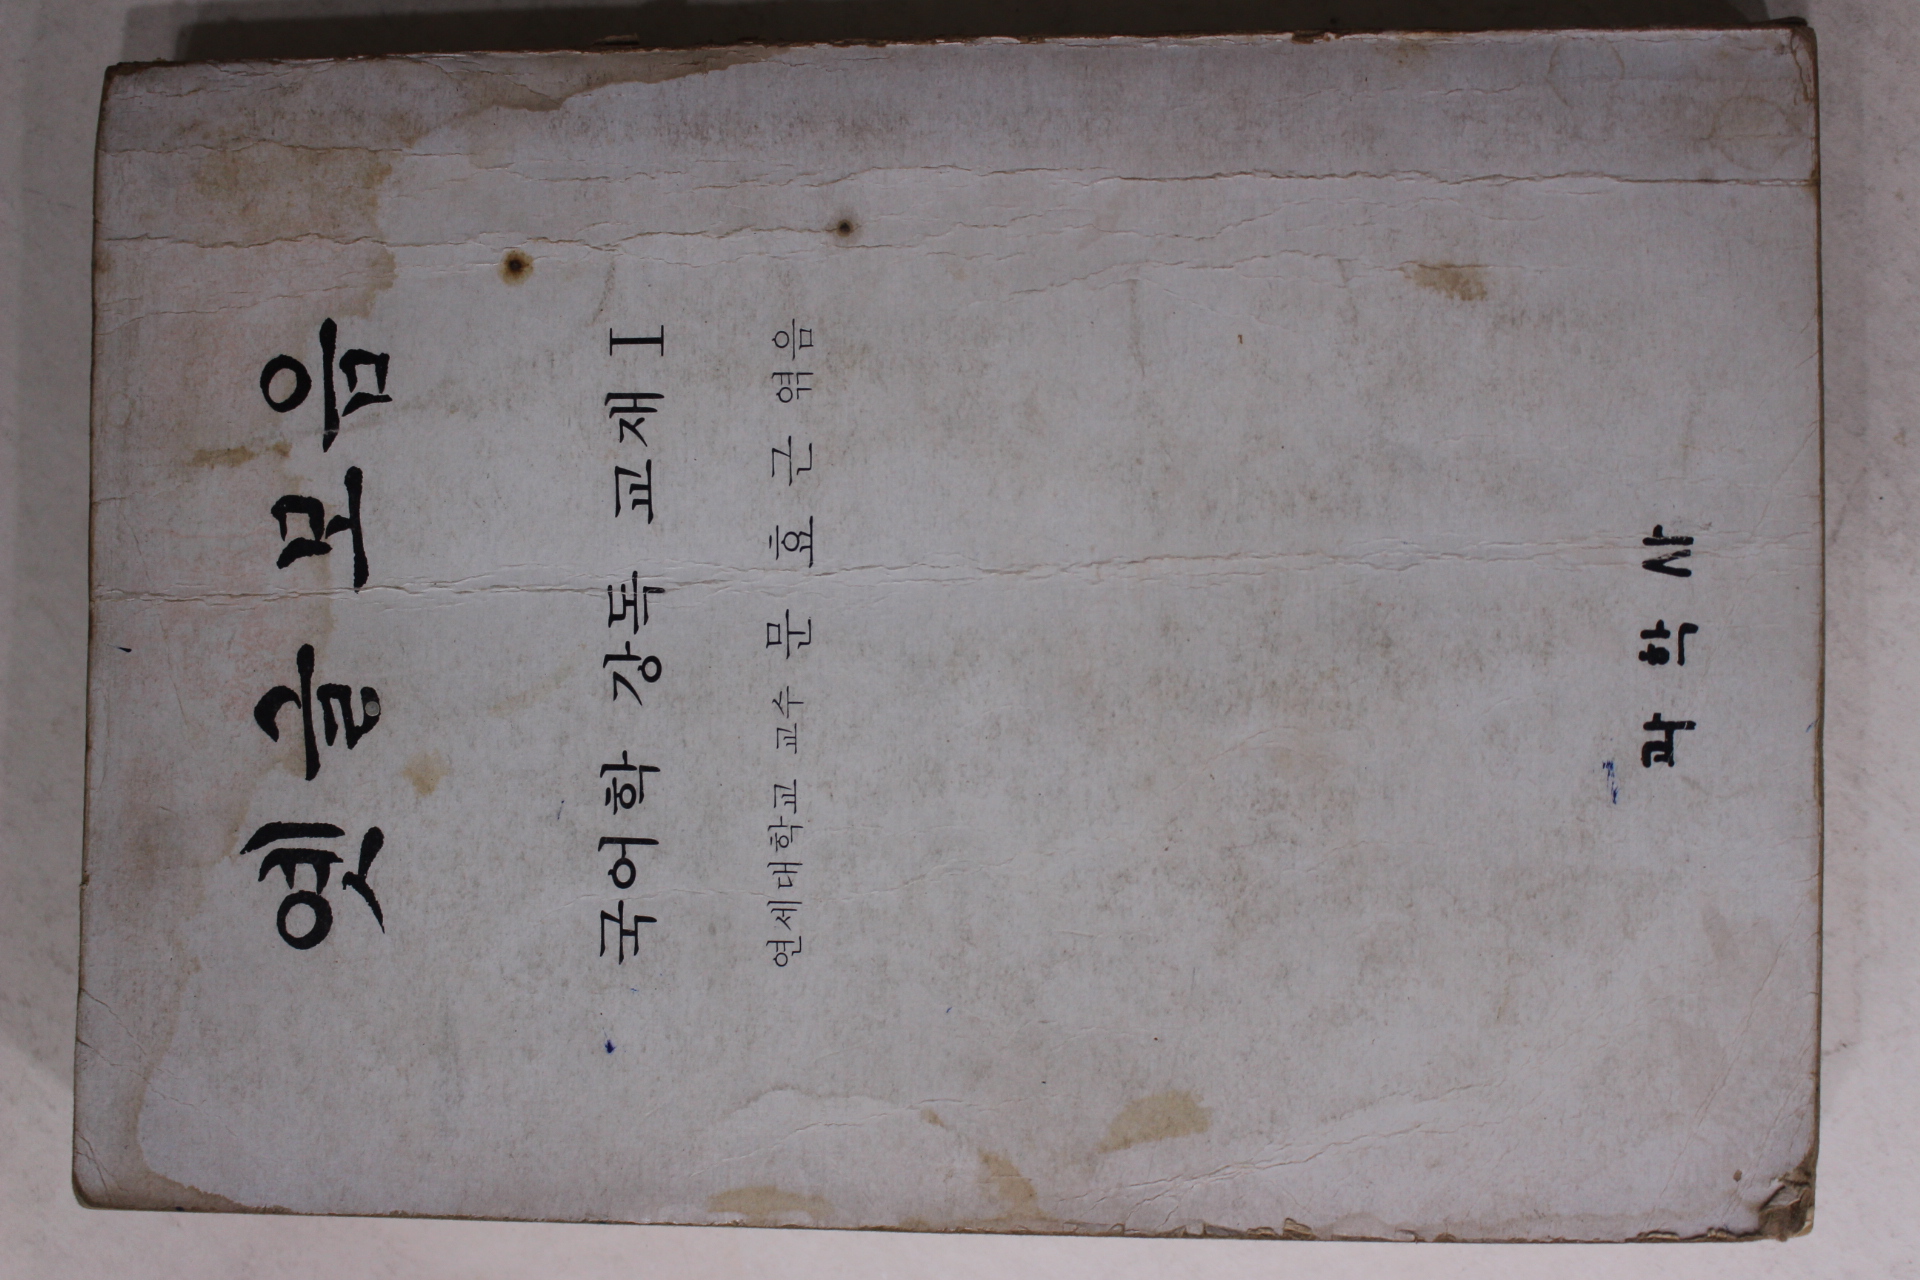 옛글 모음
국어학 강독 교재 I
연세대학교 교수 문효근 엮음
과학사